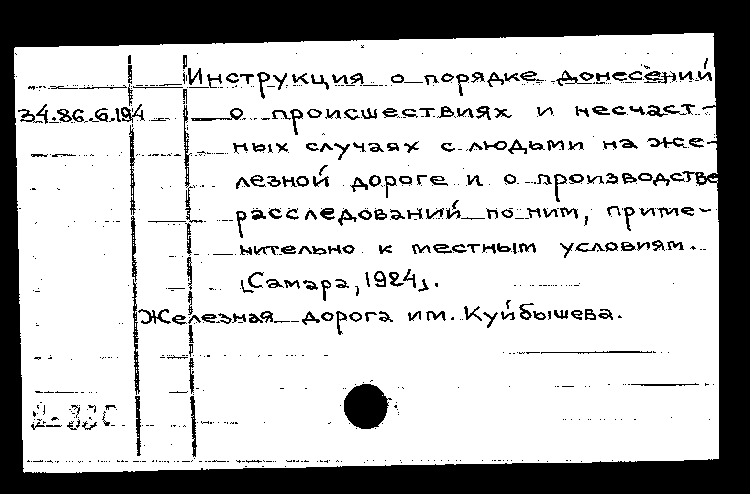 Инструкция о порядке донесений
34.86.6.194 о происшествиях и несчаст-
ных случаях с людьми на же-
лезной дороге и о производстве
расследований по ним, приме-
нительно к местным условиям.
[Самара, 1924].
Железная дорога им. Куйбышева.